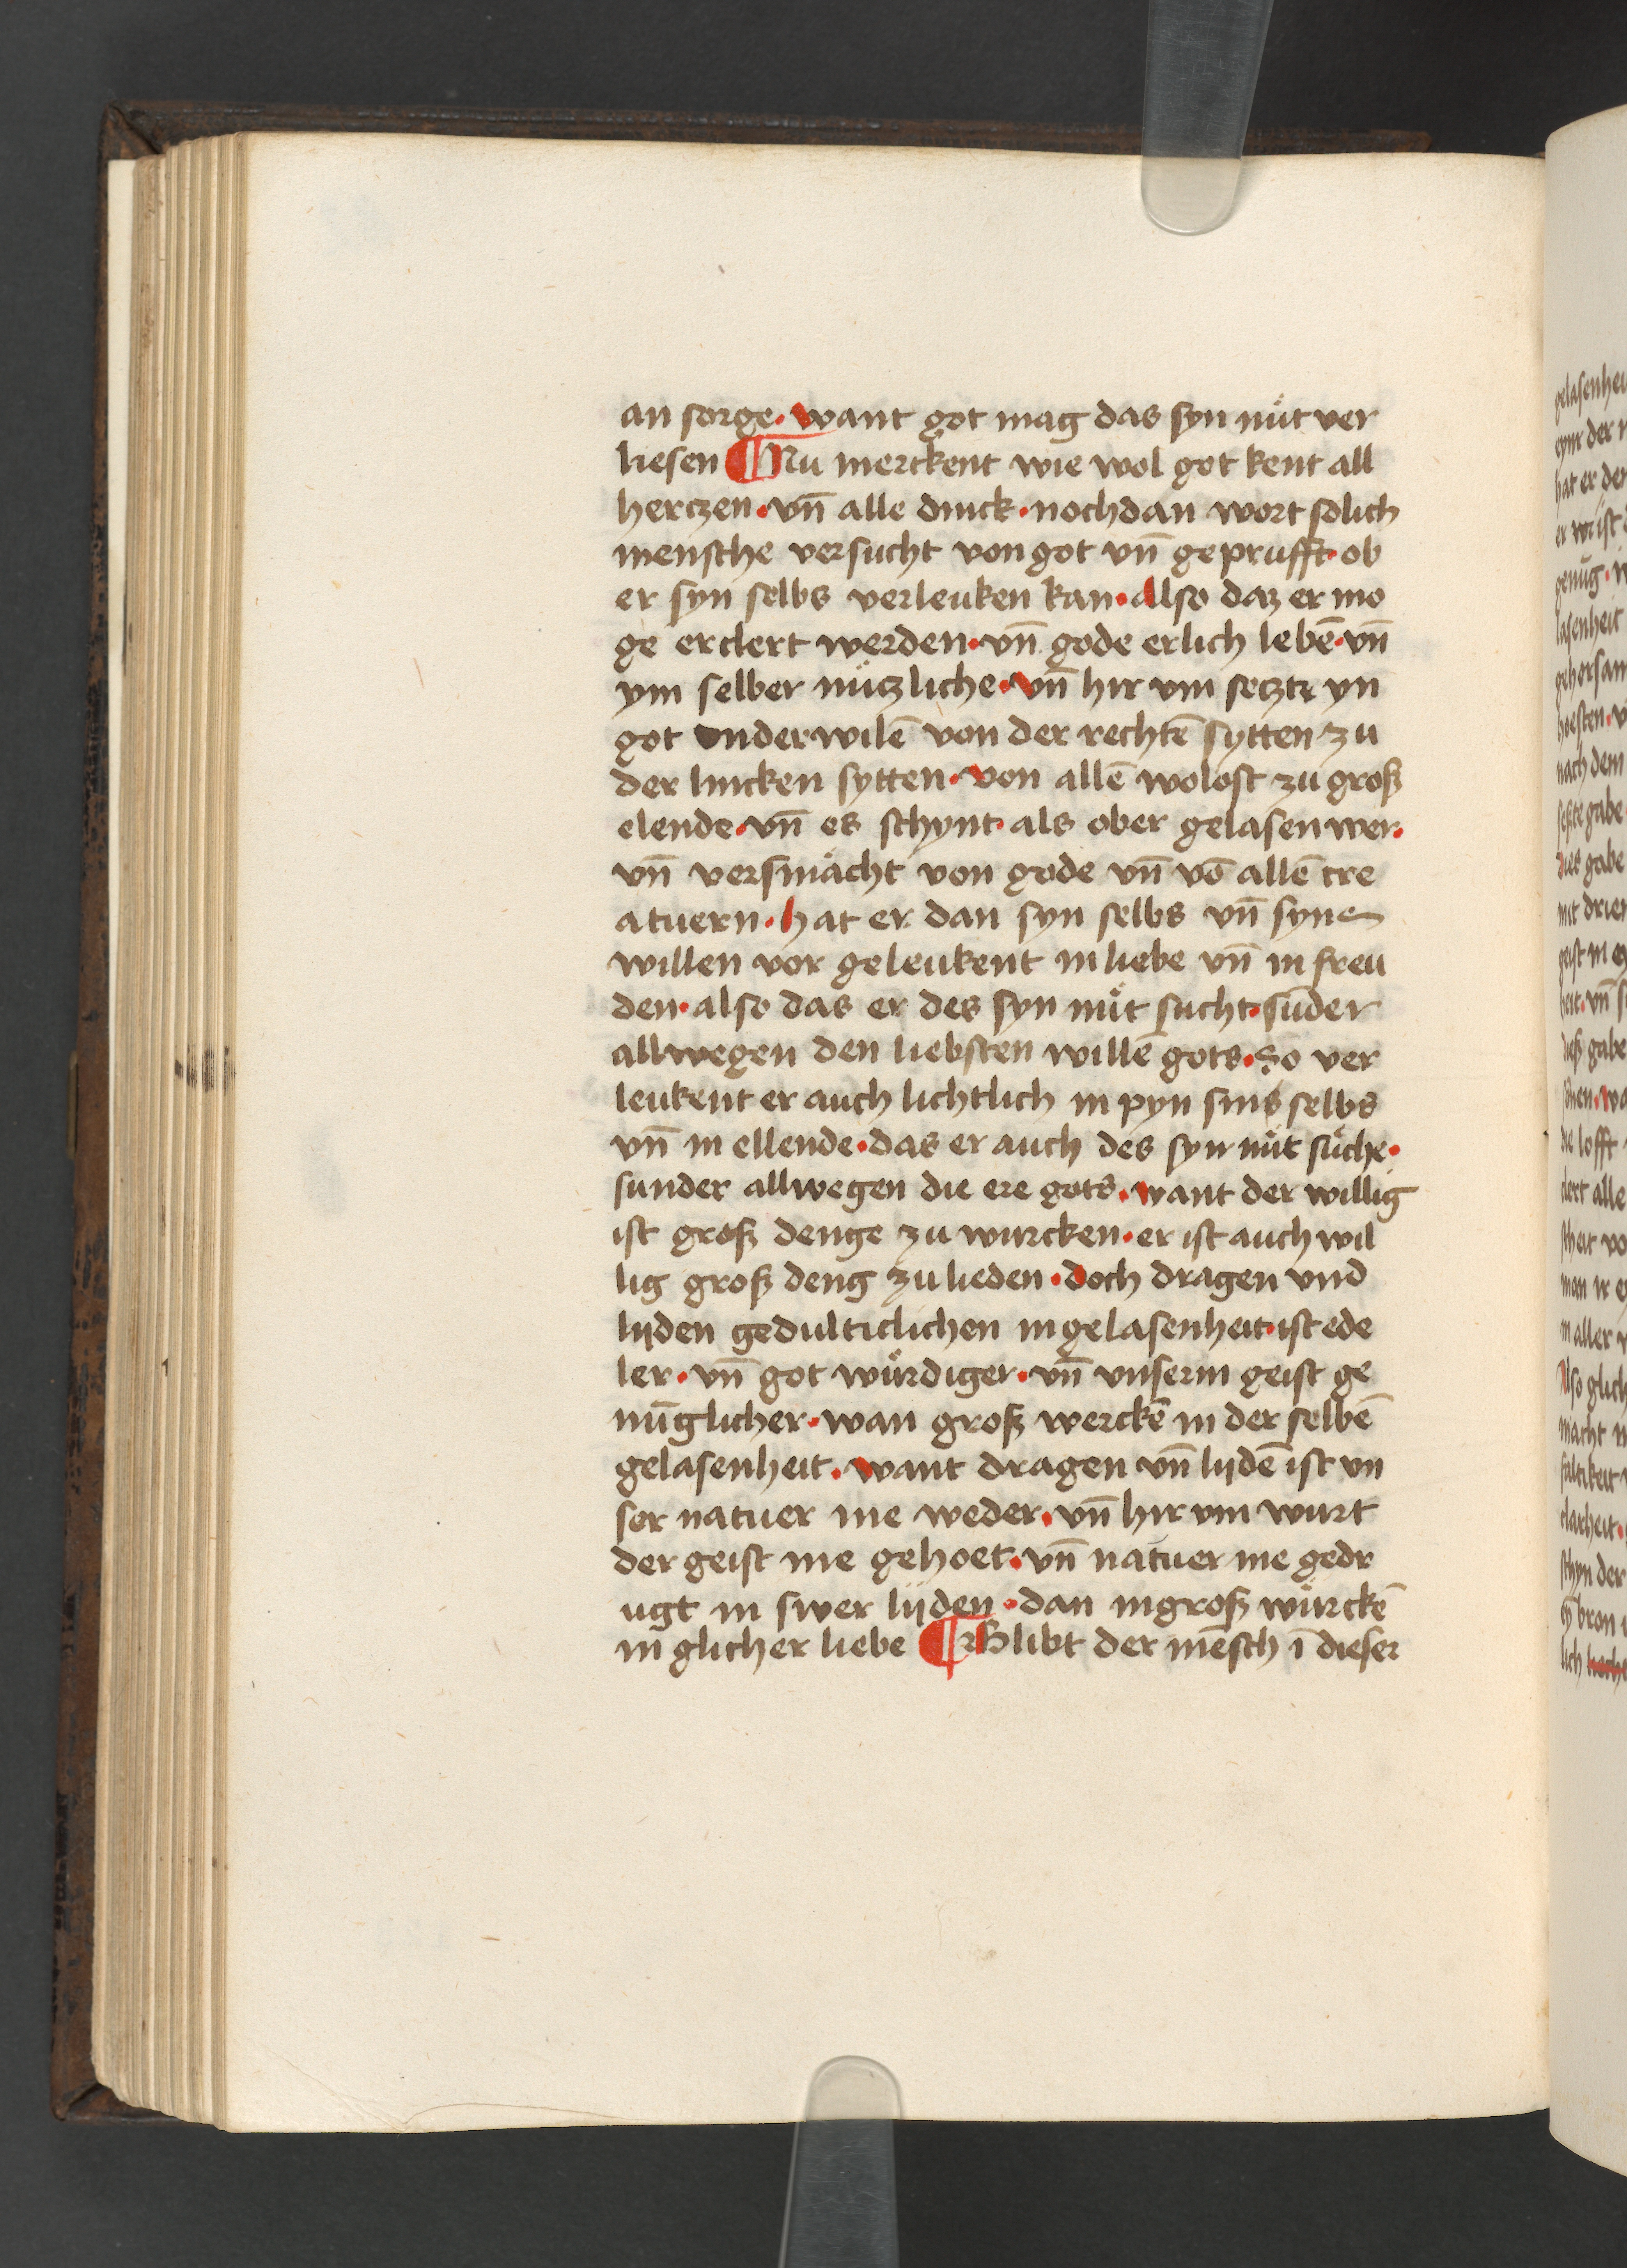 an sorge · want got mag das syn nüt ver
liesen ¶ Nu merckent wie wol got kent all
herczen · vn̄ alle dinck · nochdan wort solich
mensche versucht von got vn̄ geprufft · ob
er syn selbs verleuken kan · Also daz er mo
ge erclert werden · vn̄ gode erlich lebē · vn̄
ym selber nüczliche · vn̄ hir vm seczt yn
got onderwilē von der rechtē sytten zu
der lincken sytten · von allē wolost zu groß
elende · vn̄ es schynt · als ober gelasen wer ·
vn̄ versmächt von gode vn̄ vō allē cre
atuern · hat er dan syn selbs vn̄ syne
willen vor geleukent in liebe vn̄ in freu
den · also das er des syn nüt sucht · sunder
allwegen den liebsten willē gots · So ver
leukent er auch lichtlich in pyn sins selbs
vn̄ in ellende · das er auch des syn nüt süche ·
sunder allwegen die ere gots · want der willig
ist groß denge zu wurcken · er ist auch wil
lig groß deng zu lieden · doch dragen vnd
lijden gedulticlichen in gelasenheit · ist ede
ler · vn̄ got würdiger · vn̄ vnserm geist ge
nüglicher · wan groß werckē in der selbē
gelasenheit · want dragen vn̄ lijdē ist vn
ser natuer me weder · vn̄ hir vm wurt
der geist me gehoet · vn̄ natuer me gedr
ugt in swer lijden · dan in groß würckē
in glicher liebe ¶ Blibt der mēsch ī dieser